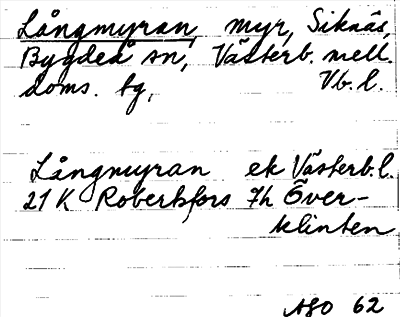 Långmyran, myr, Siknäs,
Bygdeå sn, Västerb. mell.
doms. tg, Vb. l.
Långmyran ek Västerb. l.
21 K Robertsfors 7h Över-
klinten
ASO 62